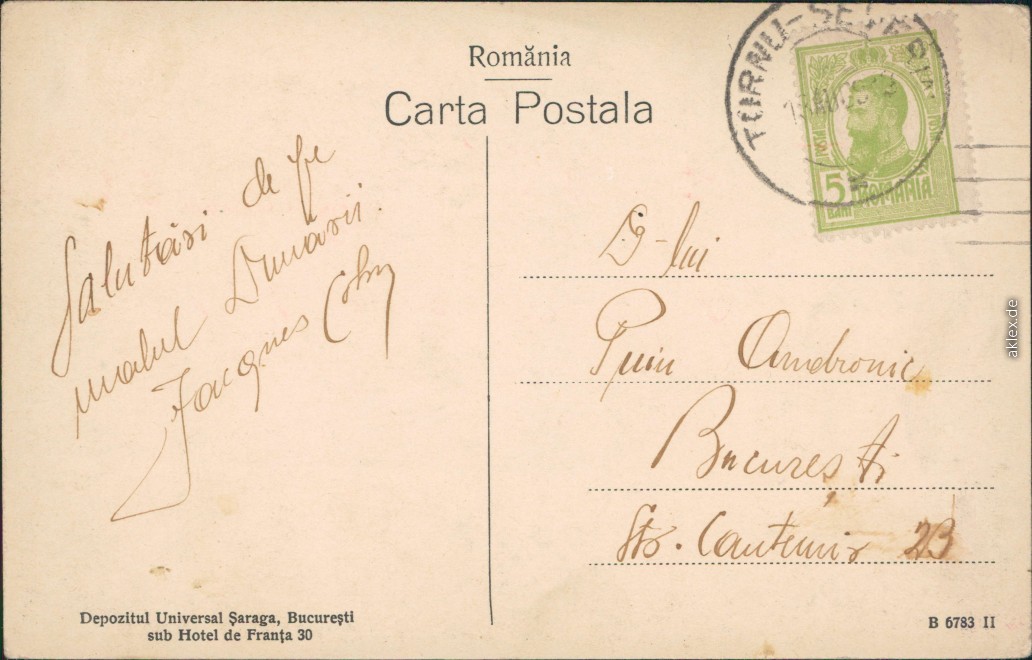 România
Carta Postala
TURNU-SEVERIN
5
BANI
ROMANIA
Salutări de pe
malul Dunării.
Jacques Cohn
D-lui
Puiu Andronic
București
Str. Cantemir 23
Depozitul Universal Șaraga, București
sub Hotel de Franța 30
B 6783 II
aklex.de